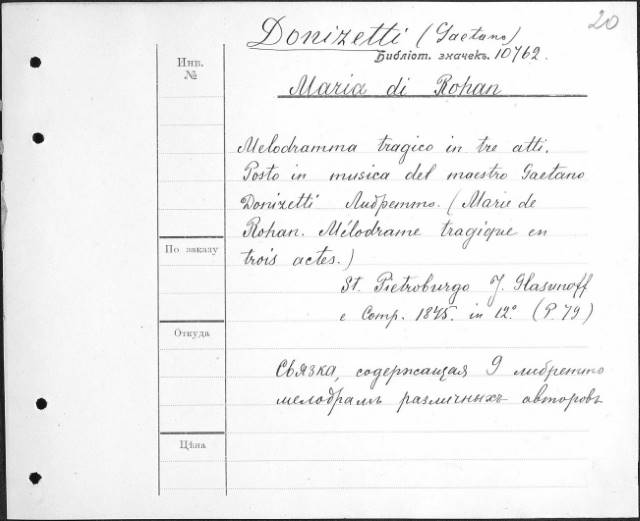 20
Donizetti (Gaetano)
Библіот. значекъ. 10762.
Инв.
№
Maria di Rohan
Melodramma tragico in tre atti.
Posto in musica del maestro Gaetano
Donizetti Либретто. (Marie de
Rohan. Mélodrame tragique en
По заказу
trois actes.)
St. Pietroburgo J. Glasunoff
e Comp. 1845. in 12° (P. 79)
Откуда
Связка, содержащая 9 либретто
мелодрамъ различныхъ авторовъ
Цѣна